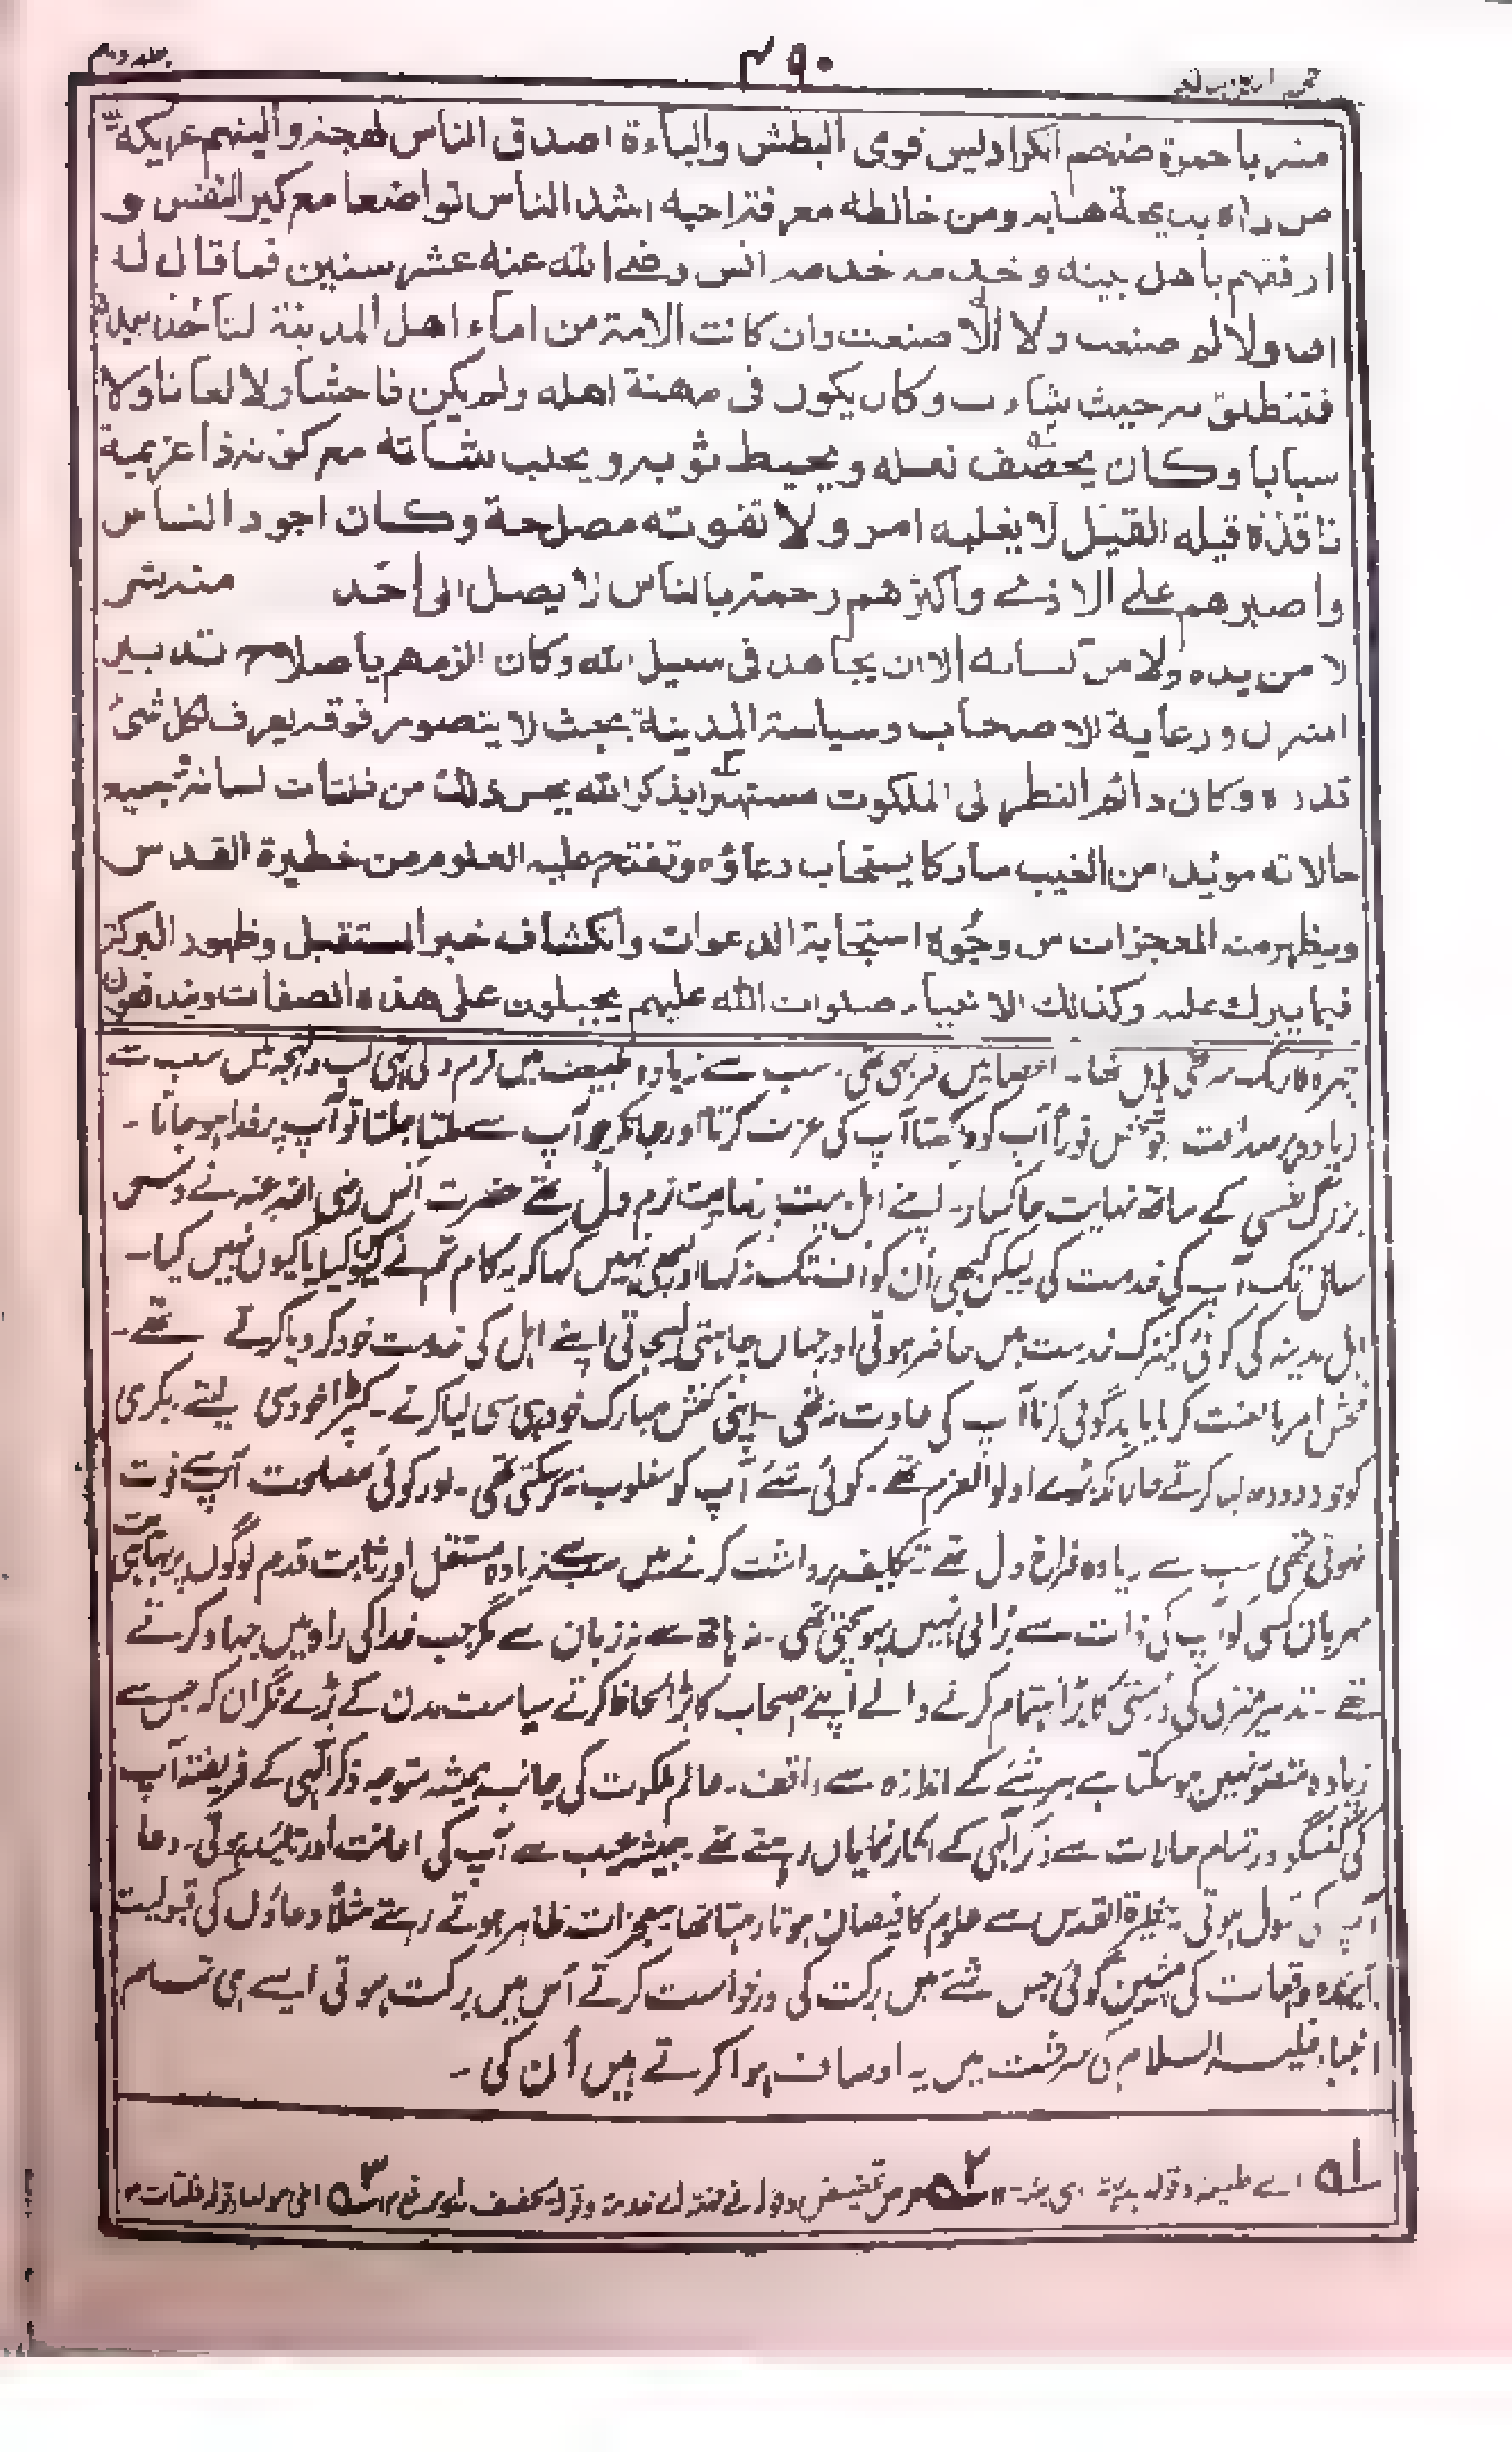 جلد دوم
۴۹۰
مشربا حمرة ضخم الكراديس قوى البطش والباءة اصدق الناس لهجة والينهم عريكة
من راه بديهة هابه ومن خالطه معرفة احبه اشد الناس تواضعا مع كبر النفس و
ارفقهم باهل بيته وخدمه خدمه انس رضى الله عنه عشر سنين فما قال له
اف ولا لم صنعت ولا الا صنعت وان كانت الامة من اماء اهل المدينة لتاخذ بيده
فتنطلق به حيث شاءت وكان يكون فى مهنة اهله ولم يكن فاحشا ولا لعانا ولا
سبابا وكان يخصف نعله ويخيط ثوبه ويحلب شاته مع كونه ذا عزيمة
نافذة قيله القيل لا يغلبه امر ولا تفوته مصلحة وكان اجود الناس
واصبرهم على الاذى واكثرهم رحمة بالناس لا يصل الى احد منه شر
لا من يده ولا من لسانه الا ان يجاهد فى سبيل الله وكان الزمهم باصلاح تدبير
المنزل ورعاية الاصحاب وسياسة المدينة بحيث لا يتصور فوقه يعرف لكل شئ
قدره وكان دائم النظر الى الملكوت مستهترا بذكر الله يحس ذلك من فلتات لسانه وجميع
حالاته مويدا من الغيب مباركا يستجاب دعاؤه وتفتح عليه العلوم من حظيرة القدس
ويظهر منه المعجزات من وجوه استجابة الدعوات وانكشاف خبر المستقبل وظهور البركة
فيما يبرك عليه وكذلك الانبياء صلوات الله عليهم يجبلون على هذه الصفات ويندفعون
چہرہ کا رنگ سرخی مائل تھا۔ اعضا میں فربہی تھی۔ سب سے زیادہ طبیعت میں نرم دلی تھی لب ولہجہ میں سب سے
زیادہ صداقت جو شخص فوراً آپ کو دیکھتا آپ کی عزت کرتا اور جانکر جو آپ سے ملتا جلتا تو آپ پر فدا ہو جاتا۔
بزرگ نفسی کے ساتھ نہایت خاکسار۔ اپنے اہل بیت نہایت نرم دل تھے حضرت انس رضی اللہ عنہ نے دس
سال تک آپ کی خدمت کی لیکن کبھی اُن کو اُف تک نہ کہا اور کبھی نہیں کہا کہ یہ کام تم نے کیوں کیا یا کیوں نہیں کیا۔
اہل مدینہ کی کوئی کنیزک خدمت میں حاضر ہوتی اور جہاں چاہتی لیجاتی اپنے اہل کی خدمت خود کر دیا کرتے تھے۔
فحش امر یا لعنت کرنا یا بدگوئی کرنا آپ کی عادت نہ تھی۔ اپنی کفش مبارک خود ہی سی لیا کرتے۔ کپڑا خود سی لیتے بکری
کو خود دوہ لیا کرتے حالانکہ بڑے اولو العزم تھے۔ کوئی شے آپ کو مغلوب نہ کر سکتی تھی۔ اور کوئی مصلحت آپ سے فوت
نہوتی تھی سب سے زیادہ فراغ دل تھے تکلیف برداشت کرنے میں سب سے زیادہ مستقل اور ثابت قدم لوگوں پر نہایت ہی
مہربان کسی کو آپ کی ذات سے برائی نہیں پہونچتی تھی۔ نہ ہاتھ سے نہ زبان سے مگر جب خدا کی راہ میں جہاد کرتے
تھے۔ تدبیر منزل کی درستی کا بڑا اہتمام کرنے والے اپنے اصحاب کا بڑا لحاظ کرتے سیاست مدن کے بڑے نگران کہ جس سے
زیادہ متصور نہیں ہو سکتا ہے ہر شے کے اندازہ سے واقف۔ عالم ملکوت کی جانب ہمیشہ متوجہ ذکر الٰہی کے فریفتہ آپ
کی گفتگو اور تمام حالات سے ذکر الٰہی کے آثار نمایاں رہتے تھے۔ ہمیشہ غیب سے آپ کی اعانت اور تائید ہوتی۔ دعا
آپ کی قبول ہوتی حظیرۃ القدس سے علوم کا فیضان ہوتا رہتا تھا معجزات ظاہر ہوتے رہتے مثلاً دعاؤں کی قبولیت
آیندہ واقعات کی پیشین گوئی جس شے میں برکت کی درخواست کرتے اُس میں برکت ہوتی ایسے ہی تمام
انبیا علیہم السلام کی سرشت میں یہ اوصاف ہوا کرتے ہیں اُن کی۔
۱ اے طبیعة وقوله